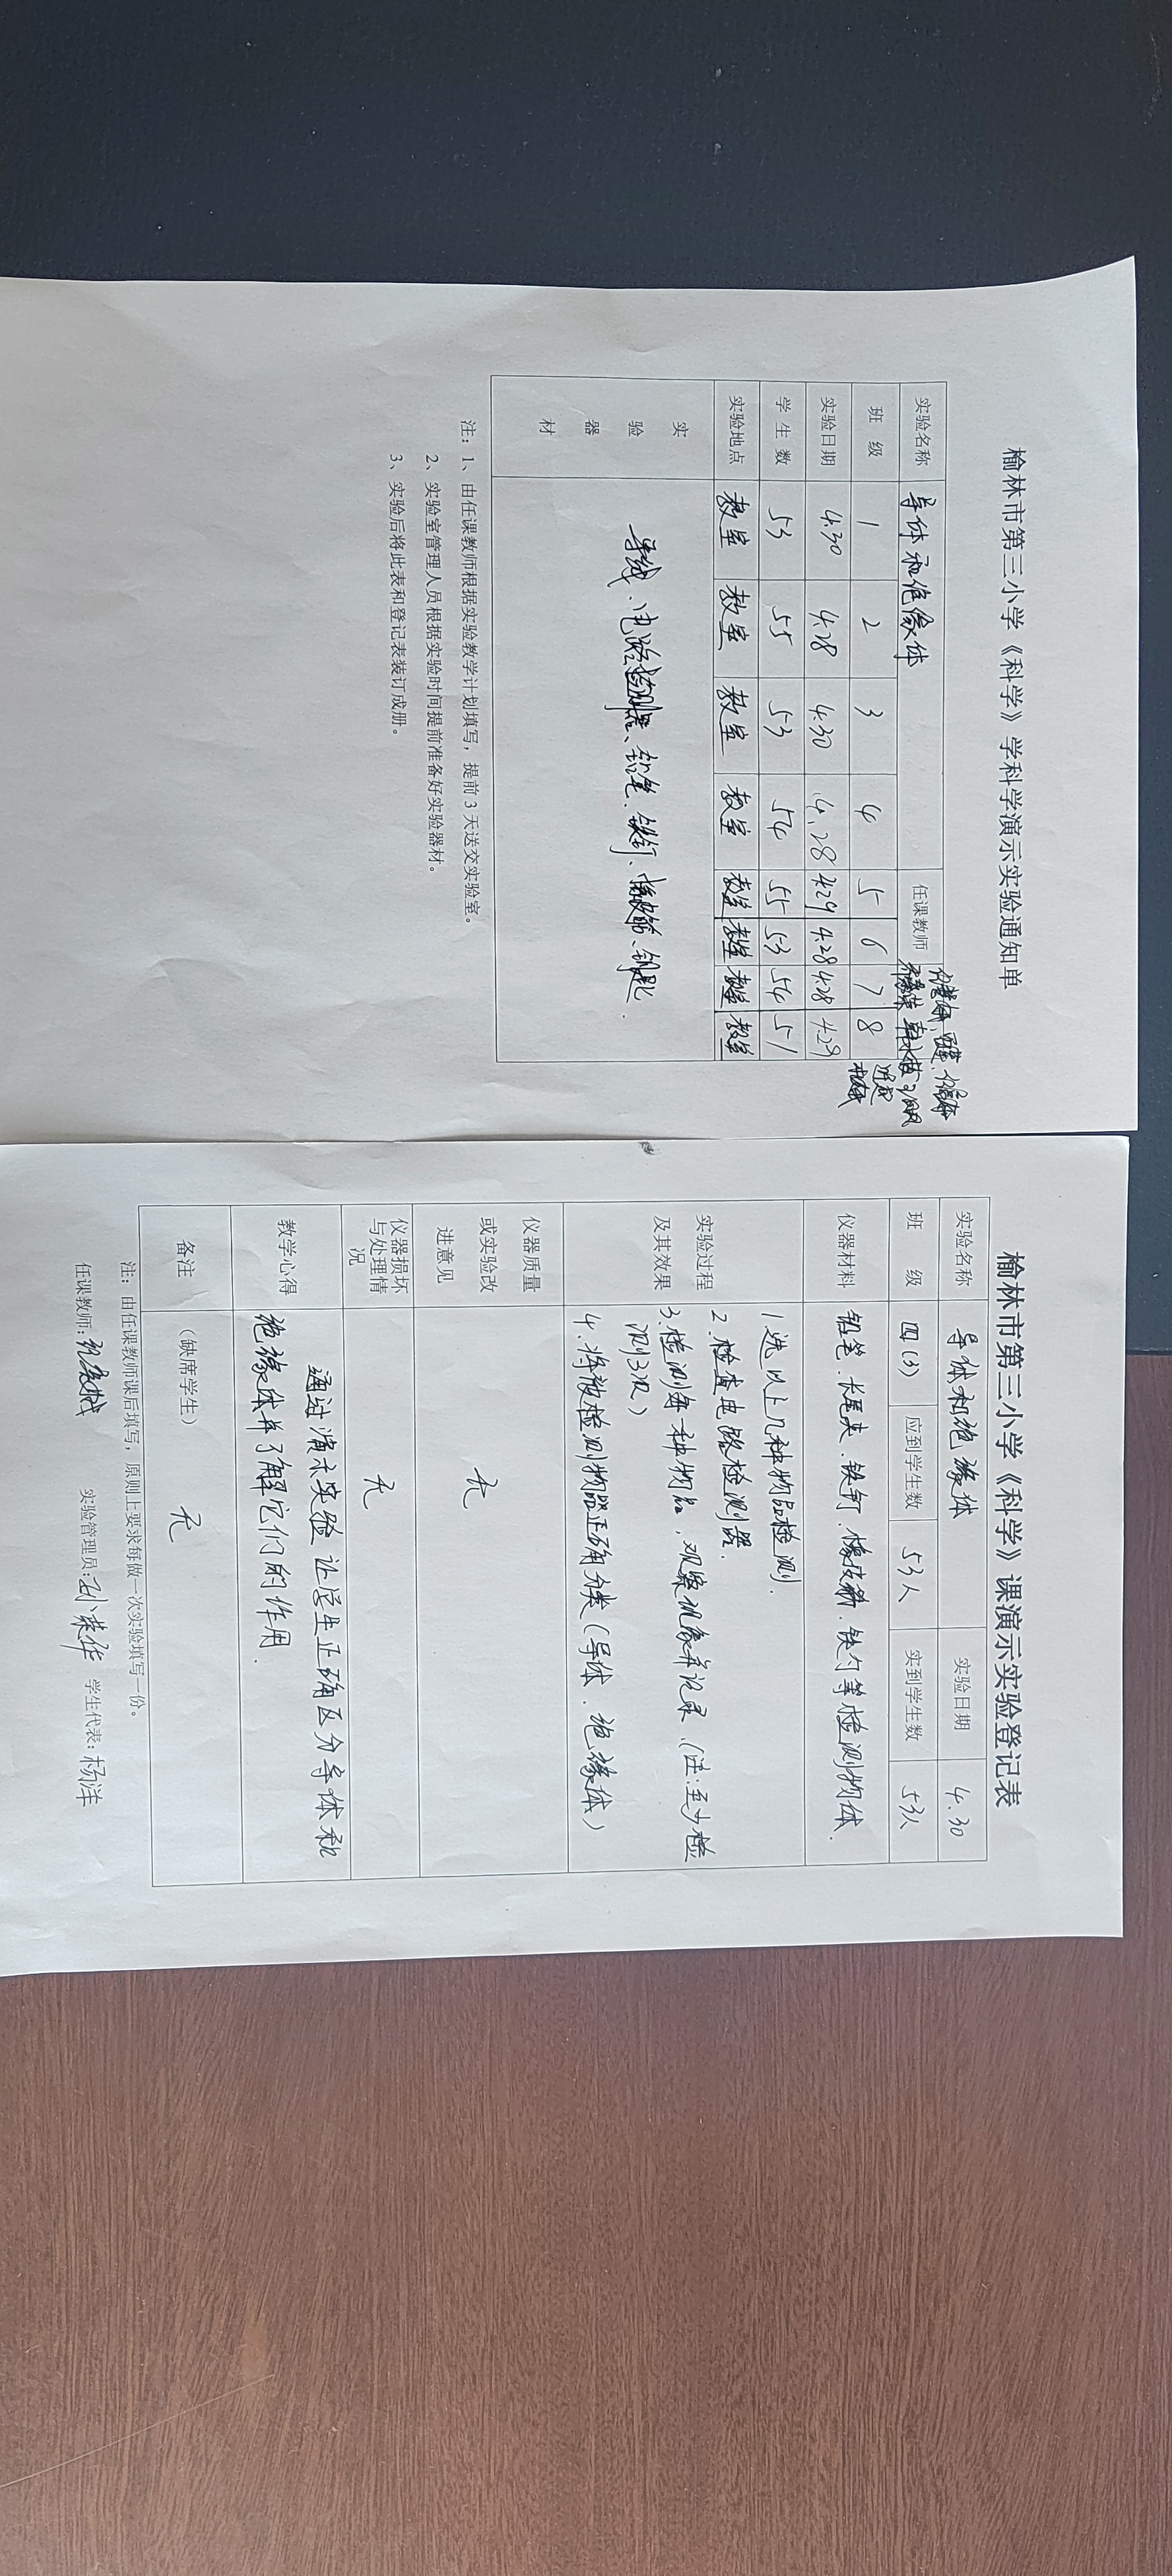 榆林市第三小学《科学》学科学演示实验通知单
实验名称 导体和绝缘体 任课教师
班 级 1 2 3 4 5 6 7 8
实验日期 4.30 4.28 4.30 4.28 4.29 4.28 4.28 4.29
学 生 数 53 55 53 54 55 53 54 51
实验地点 教室 教室 教室 教室 教室 教室 教室 教室
实验器材 导线、电路检测器、铅笔、铁钉、橡皮筋、钥匙.
注：1、由任课教师根据实验教学计划填写，提前 3 天送交实验室。
2、实验室管理人员根据实验时间提前准备好实验器材。
3、实验后将此表和登记表装订成册。
榆林市第三小学《科学》课演示实验登记表
实验名称 导体和绝缘体 实验日期 4.30
班 级 四(3) 应到学生数 53人 实到学生数 53人
仪器材料 铅笔、长尾夹、铁钉、橡皮筋、铁勺等检测物体.
实验过程及其效果
1.选以上几种物品检测.
2.检查电路检测器.
3.检测每一种物品，观察现象并记录.(注:至少检
测3次)
4.将被检测物器正确分类(导体、绝缘体)
仪器质量或实验改进意见 无
仪器损坏与处理情况 无
教学心得 通过演示实验让学生正确区分导体和
绝缘体并了解它们的作用.
备注 (缺席学生) 无
注：由任课教师课后填写，原则上要求每做一次实验填写一份。
任课教师: 实验管理员:孙荣华 学生代表:杨洋